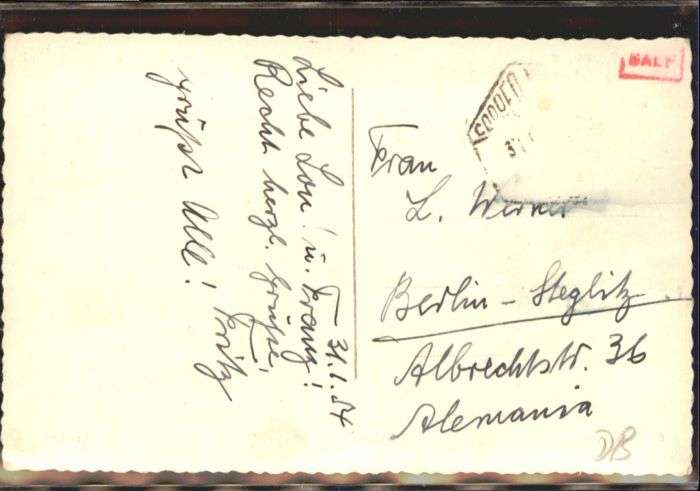 31.1.54
Liebe Lou! u. Franz!
Recht herzl. Grüße!
grüßt Alle! Fritz
Frau
L. Werner
Berlin - Steglitz
Albrechtstr. 36
Alemania
DB